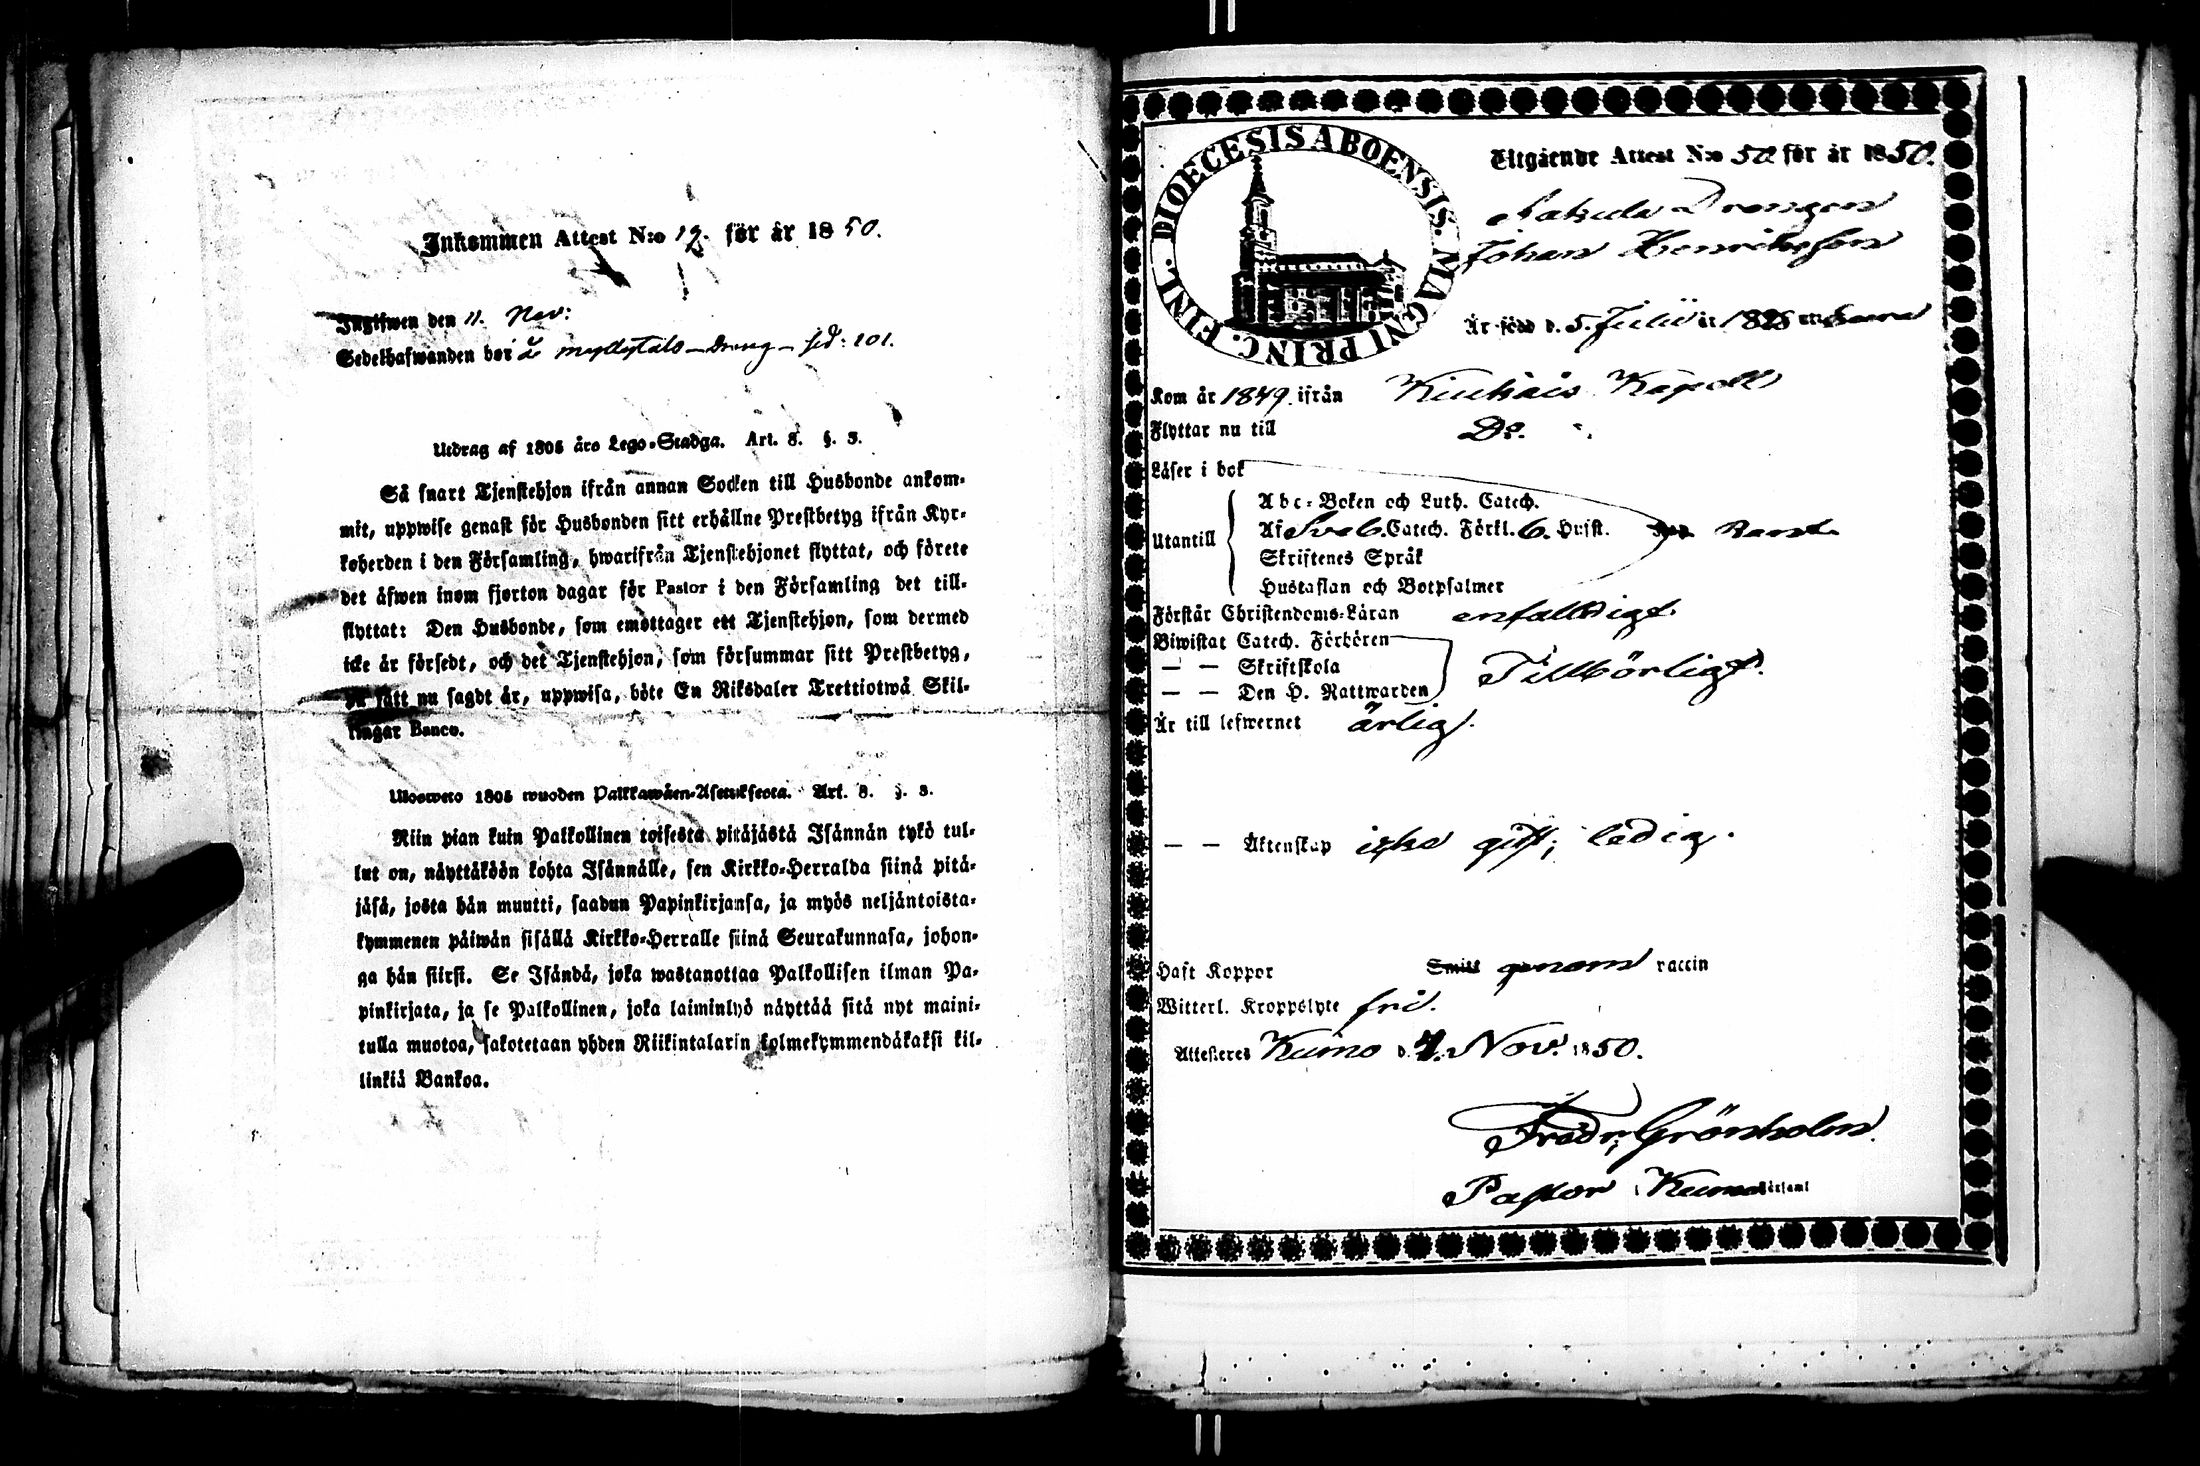 Inkommen Attest N:o 19. för år 1850.
Ingifwen den 11. Nov:
Sedelhafwanden bor å Myllytalo - Dreng - sid: 101.
Utdrag af 1805 års Lego-Stadga. Art. 8. §. 3.
Så snart Tjenstehjon ifrån annan Socken till Husbonde ankom-
mit, uppwise genast för Husbonden sitt erhållne Prestbetyg ifrån Kyr-
koherden i den Församling, hwarifrån Tjenstehjonet flyttat, och förete
det äfwen inom fjorton dagar för Pastor i den Församling det till-
flyttat: Den Husbonde, som emottager ett Tjenstehjon, som dermed
icke är försedt, och det Tjenstehjon, som försummar sitt Prestbetyg,
på sätt nu sagdt är, uppwisa, böte En Riksdaler Trettiotwå Skil-
lingar Banco.
Ulosweto 1805 wuoden Palkkawäen-Asetuksesta. Art. 8. §. 3.
Niin pian kuin Palkollinen toisesta pitäjästä Isännän tykö tul-
lut on, näyttäköön kohta Isännälle, sen Kirkko-Herralda siinä pitä-
jäsä, josta hän muutti, saadun Papinkirjansa, ja myös neljäntoista-
kymmenen päiwän sisällä Kirkko-Herralle siinä Seurakunnasa, johon-
ga hän siirsi. Se Isändä, joka wastanottaa Palkollisen ilman Pa-
pinkirjata, ja se Palkollinen, joka laiminlyö näyttää sitä nyt maini-
tulla muotoa, sakotetaan yhden Riikintalarin kolmekymmendäkaksi kil-
linkiä Bankoa.
DIOECESIS ABOENSIS. MAGNI PRINC. FINL.
Utgående Attest N:o 50 för år 1850.
Drengen
Johan Henriksson
Är född d. 5. Julii år 1825
Kom år 1849. ifrån Kiukais Kapell
Flyttar nu till Do.
Läser i bok
Abc-Boken och Luth. Catech.
Utantill Af Sveb. Catech. Förkl. 6. Hufst.
Skriftenes Språk
Hustaflan och Botpsalmer
Förstår Christendoms-Läran enfalldigt.
Biwistat Catech. Förhören
— — Skriftskola Tillbörligt.
— — Den H. Nattwarden
Är till lefwernet ärlig.
— — Äktenskap icke gift; ledig.
Haft Koppor Smitt genom vaccin
Witterl. Kroppslyte fri.
Attesteres Kumo d. 4. Nov. 1850.
Fredr. Grönholm.
Pastor i Kumo Församl